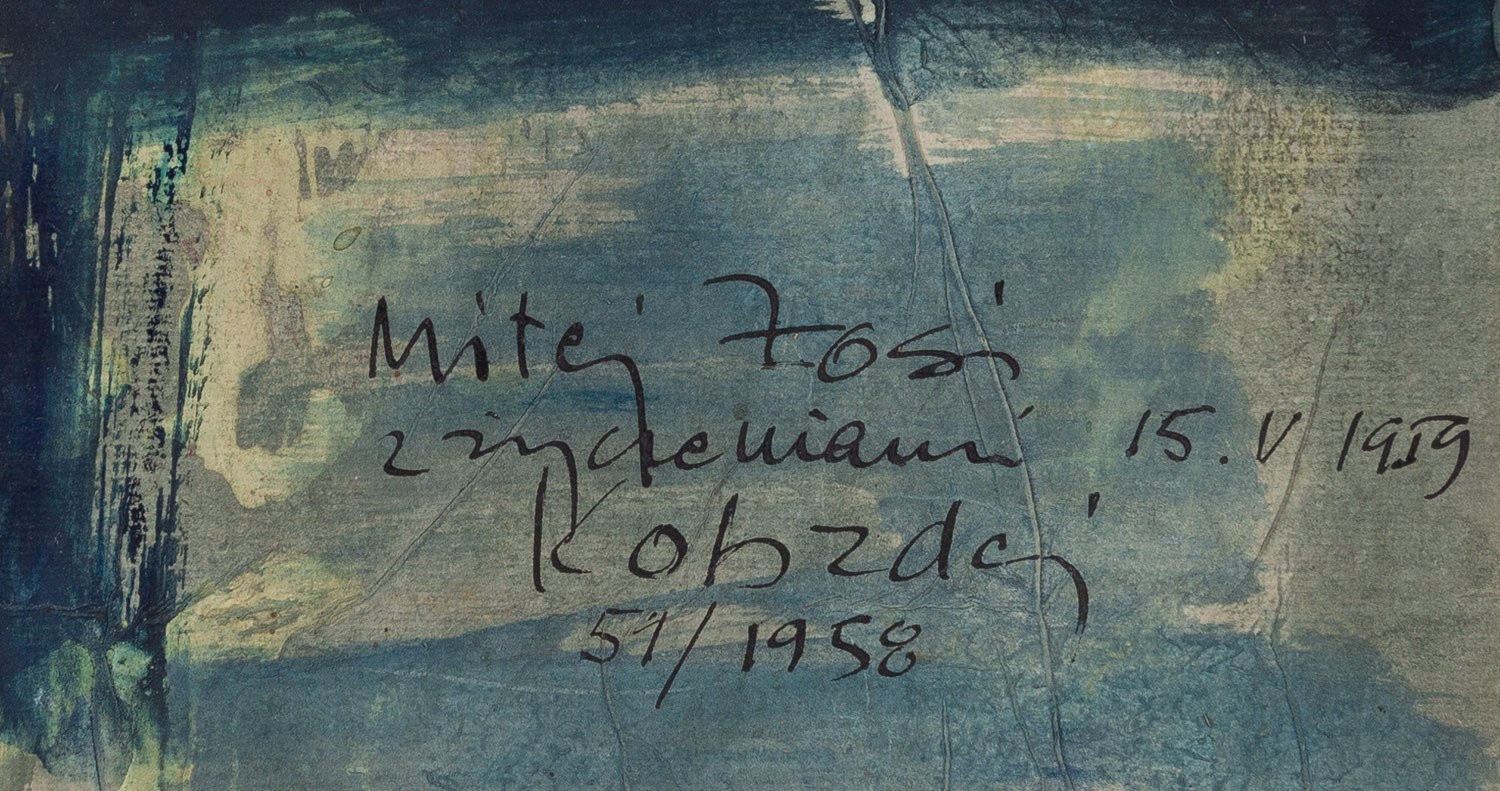 Miłej Zosi
z życzeniami 15. V 1959
Kobzdej
57/1958